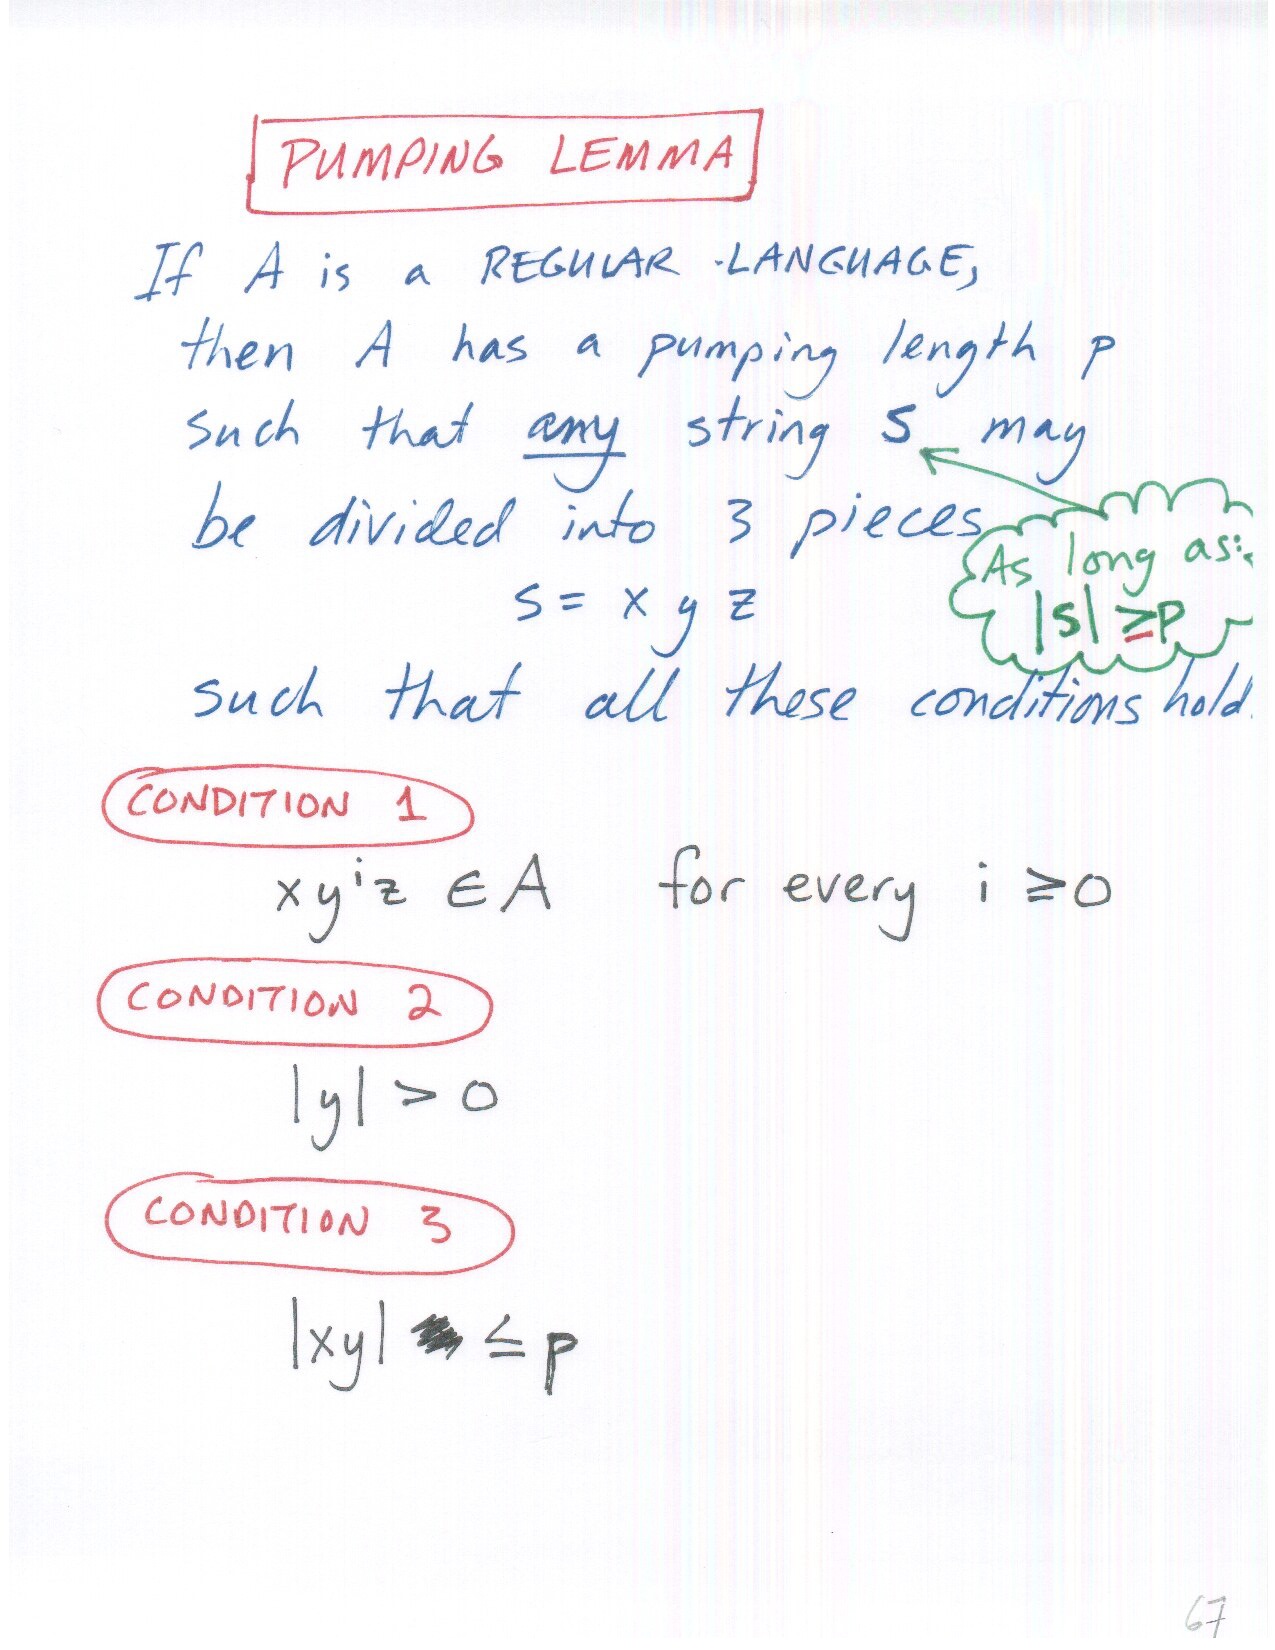 PUMPING LEMMA
If A is a REGULAR LANGUAGE,
then A has a pumping length p
such that any string s may
be divided into 3 pieces
As long as:
|s| ≥ p
s = x y z
such that all these conditions hold.
CONDITION 1
xyⁱz ∈ A for every i ≥ 0
CONDITION 2
|y| > 0
CONDITION 3
|xy| ≤ p
67